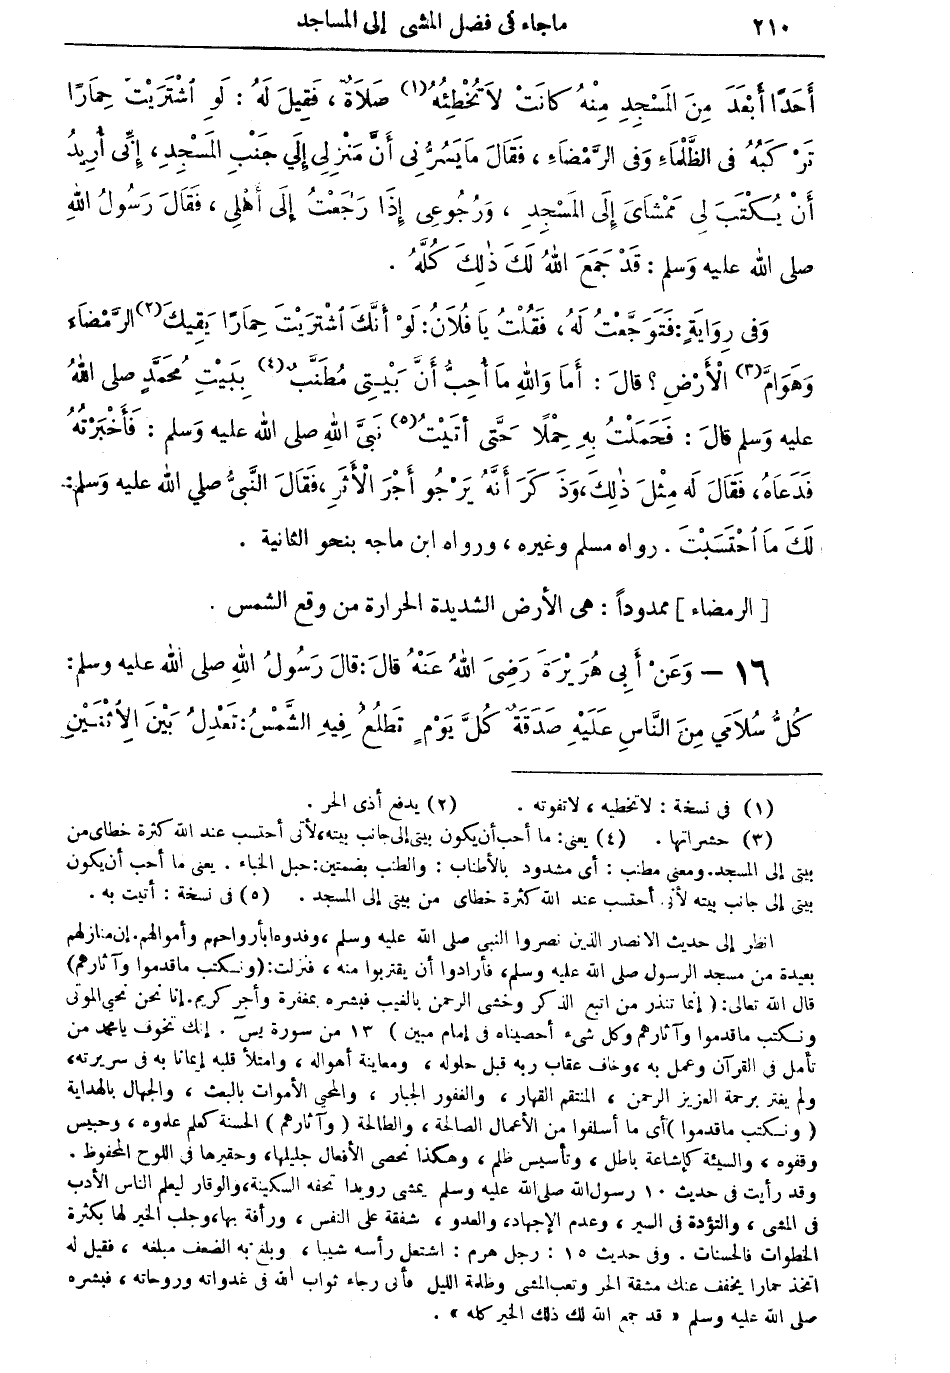 ٢١٠ ماجاء فى فضل المشى إلى المساجد
أَحَدًا أَبْعَدَ مِنَ الْمَسْجِدِ مِنْهُ كَانَتْ لَا تُخْطِئُهُ(١) صَلَاةٌ ، فَقِيلَ لَهُ : لَوِ اشْتَرَيْتَ حِمَارًا
تَرْكَبُهُ فى الظَّلْمَاءِ وَفى الرَّمْضَاءِ ، فَقَالَ مَا يَسُرُّنِى أَنَّ مَنْزِلِى إِلَى جَنْبِ الْمَسْجِدِ ، إِنِّى أُرِيدُ
أَنْ يُكْتَبَ لِى مَمْشَاىَ إِلَى الْمَسْجِدِ ، وَرُجُوعِى إِذَا رَجَعْتُ إِلَى أَهْلِى ، فَقَالَ رَسُولُ اللهِ
صلى الله عليه وَسلم : قَدْ جَمَعَ اللهُ لَكَ ذٰلِكَ كُلَّهُ .
وَفى رِوَايَةٍ : فَتَوَجَّعْتُ لَهُ ، فَقُلْتُ يَا فُلَانُ : لَوْ أَنَّكَ اشْتَرَيْتَ حِمَارًا يَقِيكَ(٢) الرَّمْضَاءَ
وَهَوَامَّ(٣) الْأَرْضِ ؟ قالَ : أَمَا وَاللهِ مَا أُحِبُّ أَنَّ بَيْتِى مُطَنَّبٌ(٤) بِبَيْتِ مُحَمَّدٍ صلى اللهُ
عليه وَسلم قالَ : فَحَمَلْتُ بِهِ حِمْلًا حَتَّى أَتَيْتُ(٥) نَبِىَّ اللهِ صلى الله عليه وَسلم : فَأَخْبَرْتُهُ
فَدَعَاهُ ، فَقَالَ لَه مِثْلَ ذٰلِكَ ، وَذَكَرَ أَنَّهُ يَرْجُو أَجْرَ الْأَثَرِ ، فَقَالَ النَّبِىُّ صلى الله عليه وَسلم :
لَكَ مَا احْتَسَبْتَ . رواه مسلم وغيره ، ورواه ابن ماجه بنحو الثانية .
[ الرمضاء ] ممدوداً : هى الأرض الشديدة الحرارة من وقع الشمس .
١٦ — وَعَنْ أَبِى هُرَيْرَةَ رَضِىَ اللهُ عَنْهُ قالَ : قالَ رَسُولُ اللهِ صلى الله عليه وسلم :
كُلُّ سُلَامَى مِنَ النَّاسِ عَلَيْهِ صَدَقَةٌ كُلَّ يَوْمٍ تَطلُعُ فِيهِ الشَّمْسُ : تَعْدِلُ بَيْنَ الِاثْنَيْنِ
(١) فى نسخة : لاتخطيه ، لاتفوته . (٢) يدفع أذى الحر .
(٣) حشراتها . (٤) يعنى : ما أحب أن يكون بيتى إلى جانب بيته ، لأنى أحتسب عند الله كثرة خطاى من
بيتى إلى المسجد . ومعنى مطنب : أى مشدود بالأطناب : والطنب بضمتين : حبل الخباء . يعنى ما أحب أن يكون
بيتى إلى جانب بيته لأنى أحتسب عند الله كثرة خطاى من بيتى إلى المسجد . (٥) فى نسخة : أتيت به .
انظر إلى حديث الانصار الذين نصروا النبى صلى الله عليه وسلم ، وفدوه بأرواحهم وأموالهم . إن منازلهم
بعيدة من مسجد الرسول صلى الله عليه وسلم ، فأرادوا أن يقتربوا منه ، فنزلت : (ونكتب ماقدموا وآثارهم)
قال الله تعالى : ( إنما تنذر من اتبع الذكر وخشى الرحمن بالغيب فبشره بمغفرة وأجر كريم . إنا نحن نحى الموتى
ونكتب ماقدموا وآثارهم وكل شىء أحصيناه فى إمام مبين ) ١٣ من سورة يس . إنك تخوف يامحمد من
تأمل فى القرآن وعمل به ، وخاف عقاب ربه قبل حلوله ، ومعاينة أهواله ، وامتلأ قلبه إيمانا به فى سريرته ،
ولم يغتر برحمة العزيز الرحمن ، المنتقم القهار ، والغفور الجبار ، والمحى الأموات بالبعث ، والجهال بالهداية
( ونكتب ماقدموا ) أى ما أسلفوا من الأعمال الصالحة ، والطالحة ( وآثارهم ) الحسنة كعلم علموه ، وحبيس
وقفوه ، والسيئة كإشاعة باطل ، وتأسيس ظلم ، وهكذا نحصى الأفعال جليلها ، وحقيرها فى اللوح المحفوظ .
وقد رأيت فى حديث ١٠ رسول الله صلى الله عليه وسلم يمشى رويدا تحفه السكينة ، والوقار ليعلم الناس الأدب
فى المشى ، والتؤدة فى السير ، وعدم الإجهاد ، والعدو ، شفقة على النفس ، ورأفة بها ، وجلب الخير لها بكثرة
الخطوات فالحسنات . وفى حديث ١٥ : رجل هرم : اشتعل رأسه شيبا ، وبلغ به الضعف مبلغه ، فقيل له
اتخذ حمارا يخفف عنك مشقة الحر وتعب المشى وظلمة الليل فأبى رجاء ثواب الله فى غدواته وروحاته ، فبشره
صلى الله عليه وسلم « قد جمع الله لك ذلك الخير كله » .